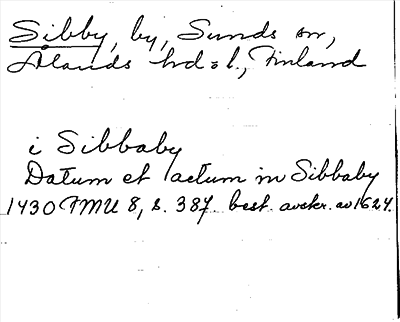 Sibby, by, Sunds sn,
Ålands hd:l, Finland
i Sibbaby
Datum et actum in Sibbaby
1430 FMU 8, s. 387. best. avskr. av 1624.